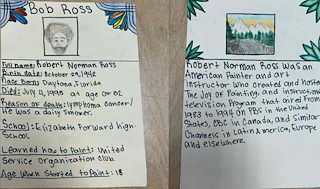 Bob Ross
Full name: Robert Norman Ross
Birth date: October 29, 1942
Place Born: Daytona, Florida
Died: July 4, 1995 at age 52
Reason of death: lymphoma cancer/
He was a daily smoker.
School: Elizabeth Forward high-
School
Learned how to Paint: United
Service Organization club
Age When Started to Paint: 18
Robert Norman Ross was an
American Painter and art
instructor who created and hosted
The Joy of Painting, and instructional
television Program that aired From
1983 to 1994 on PBS in the United
States, CBC in Canada, and Similar
Channels in Latin America, Europe
and elsewhere.